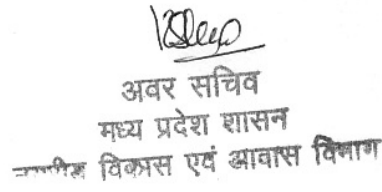 अवर सचिव
मध्य प्रदेश शासन
विकास एवं आवास विभाग